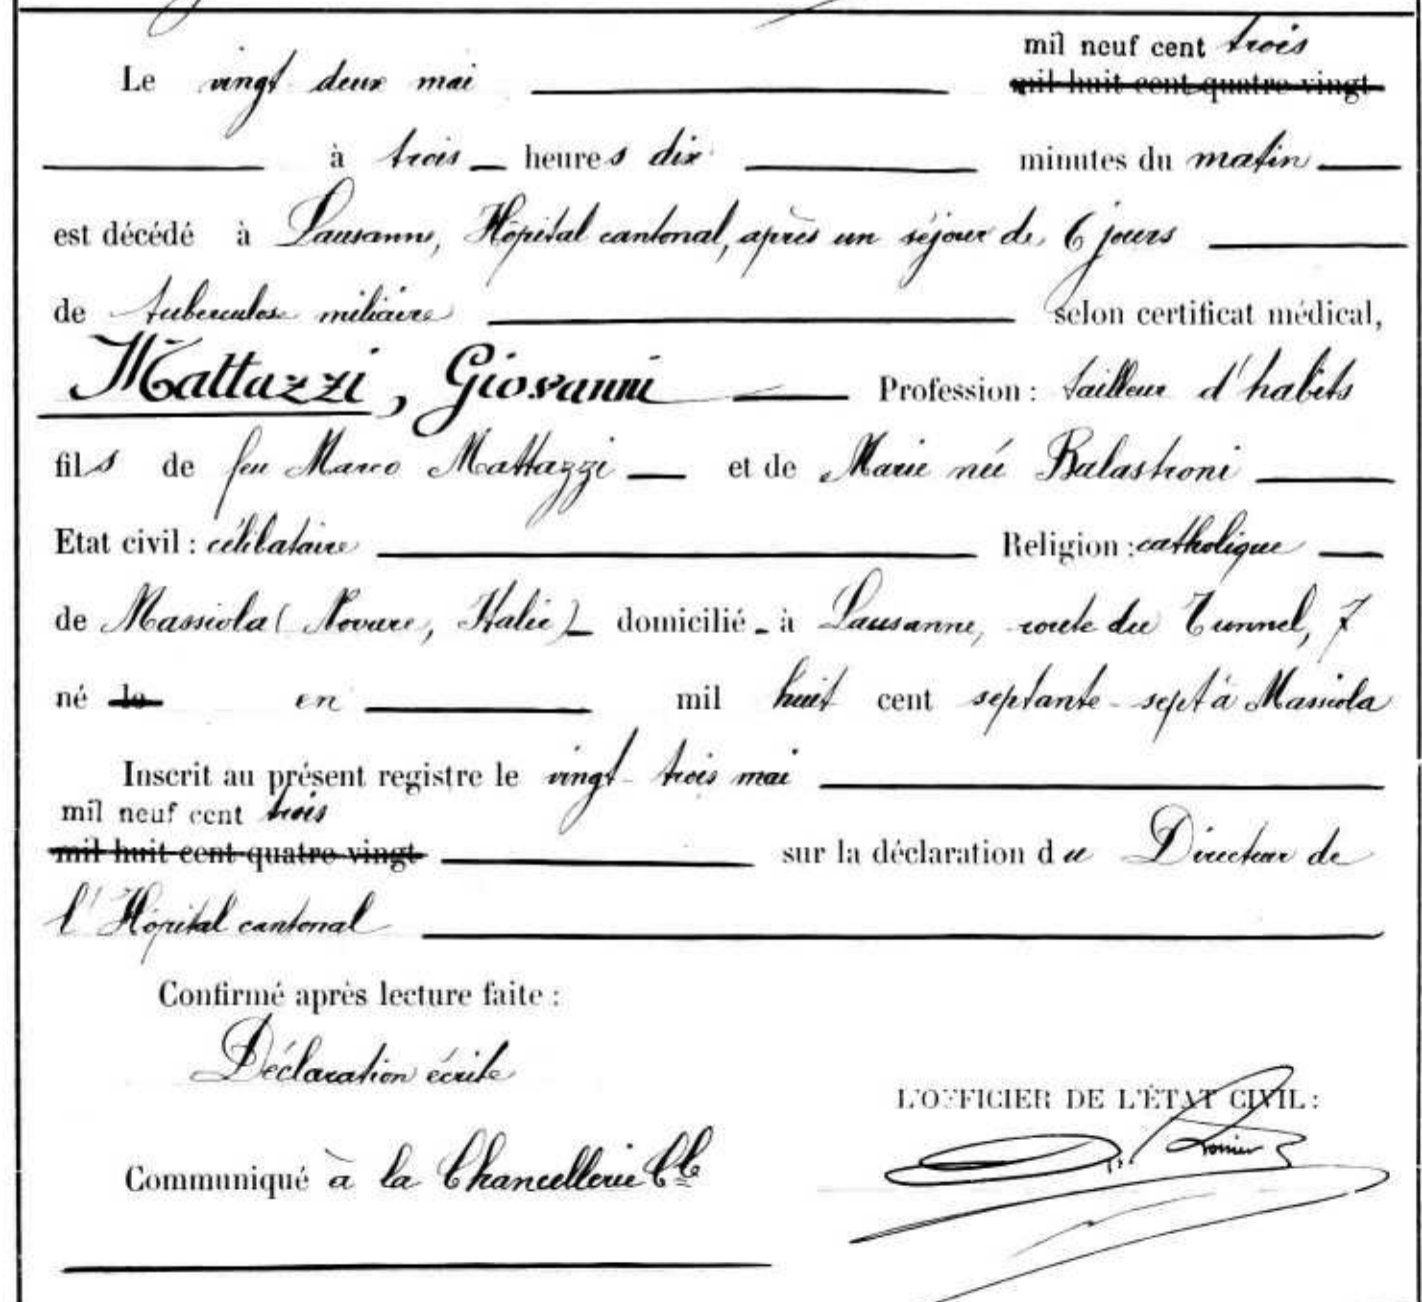 mil neuf cent trois
Le vingt deux mai mil huit cent quatre-vingt
à trois heures dix minutes du matin
est décédé à Lausanne, Hôpital cantonal, après un séjour de 6 jours
de tuberculose miliaire selon certificat médical,
Mattazzi, Giovanni Profession : tailleur d'habits
fils de feu Marco Mattazzi et de Marie née Balastroni
Etat civil : célibataire Religion : catholique
de Massiola (Novare, Italie) domicilié à Lausanne, route du Tunnel, 7
né le en mil huit cent septante-sept à Massiola
Inscrit au présent registre le vingt-trois mai
mil neuf cent trois
mil huit cent quatre-vingt sur la déclaration du Directeur de
l'Hôpital cantonal
Confirmé après lecture faite :
Déclaration écrite
L'OFFICIER DE L'ÉTAT CIVIL :
Communiqué à la Chancellerie Cle